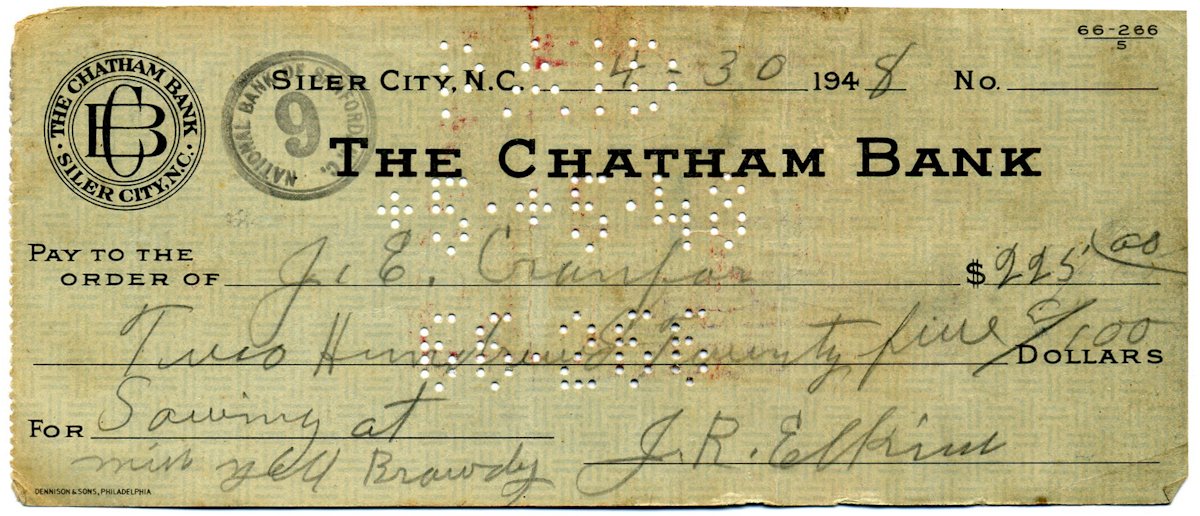 66-266
5
THE CHATHAM BANK
SILER CITY, N.C.
CB
NATIONAL BANK OF
9
SILER CITY, N.C. 4-30 1948 No.
THE CHATHAM BANK
PAY TO THE
ORDER OF J. E. Cranfor $ 225 00
Two Hundred Twenty five 0/100 DOLLARS
FOR Sawing at
J. R. Elkins
DENNISON & SONS, PHILADELPHIA